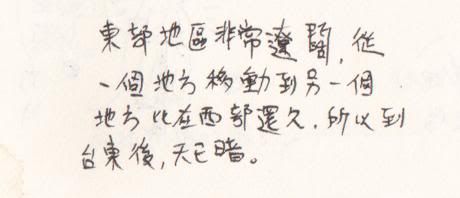 東部地區非常遼闊,從
一個地方移動到另一個
地方比在西部還久.所以到
台東後,天已暗。